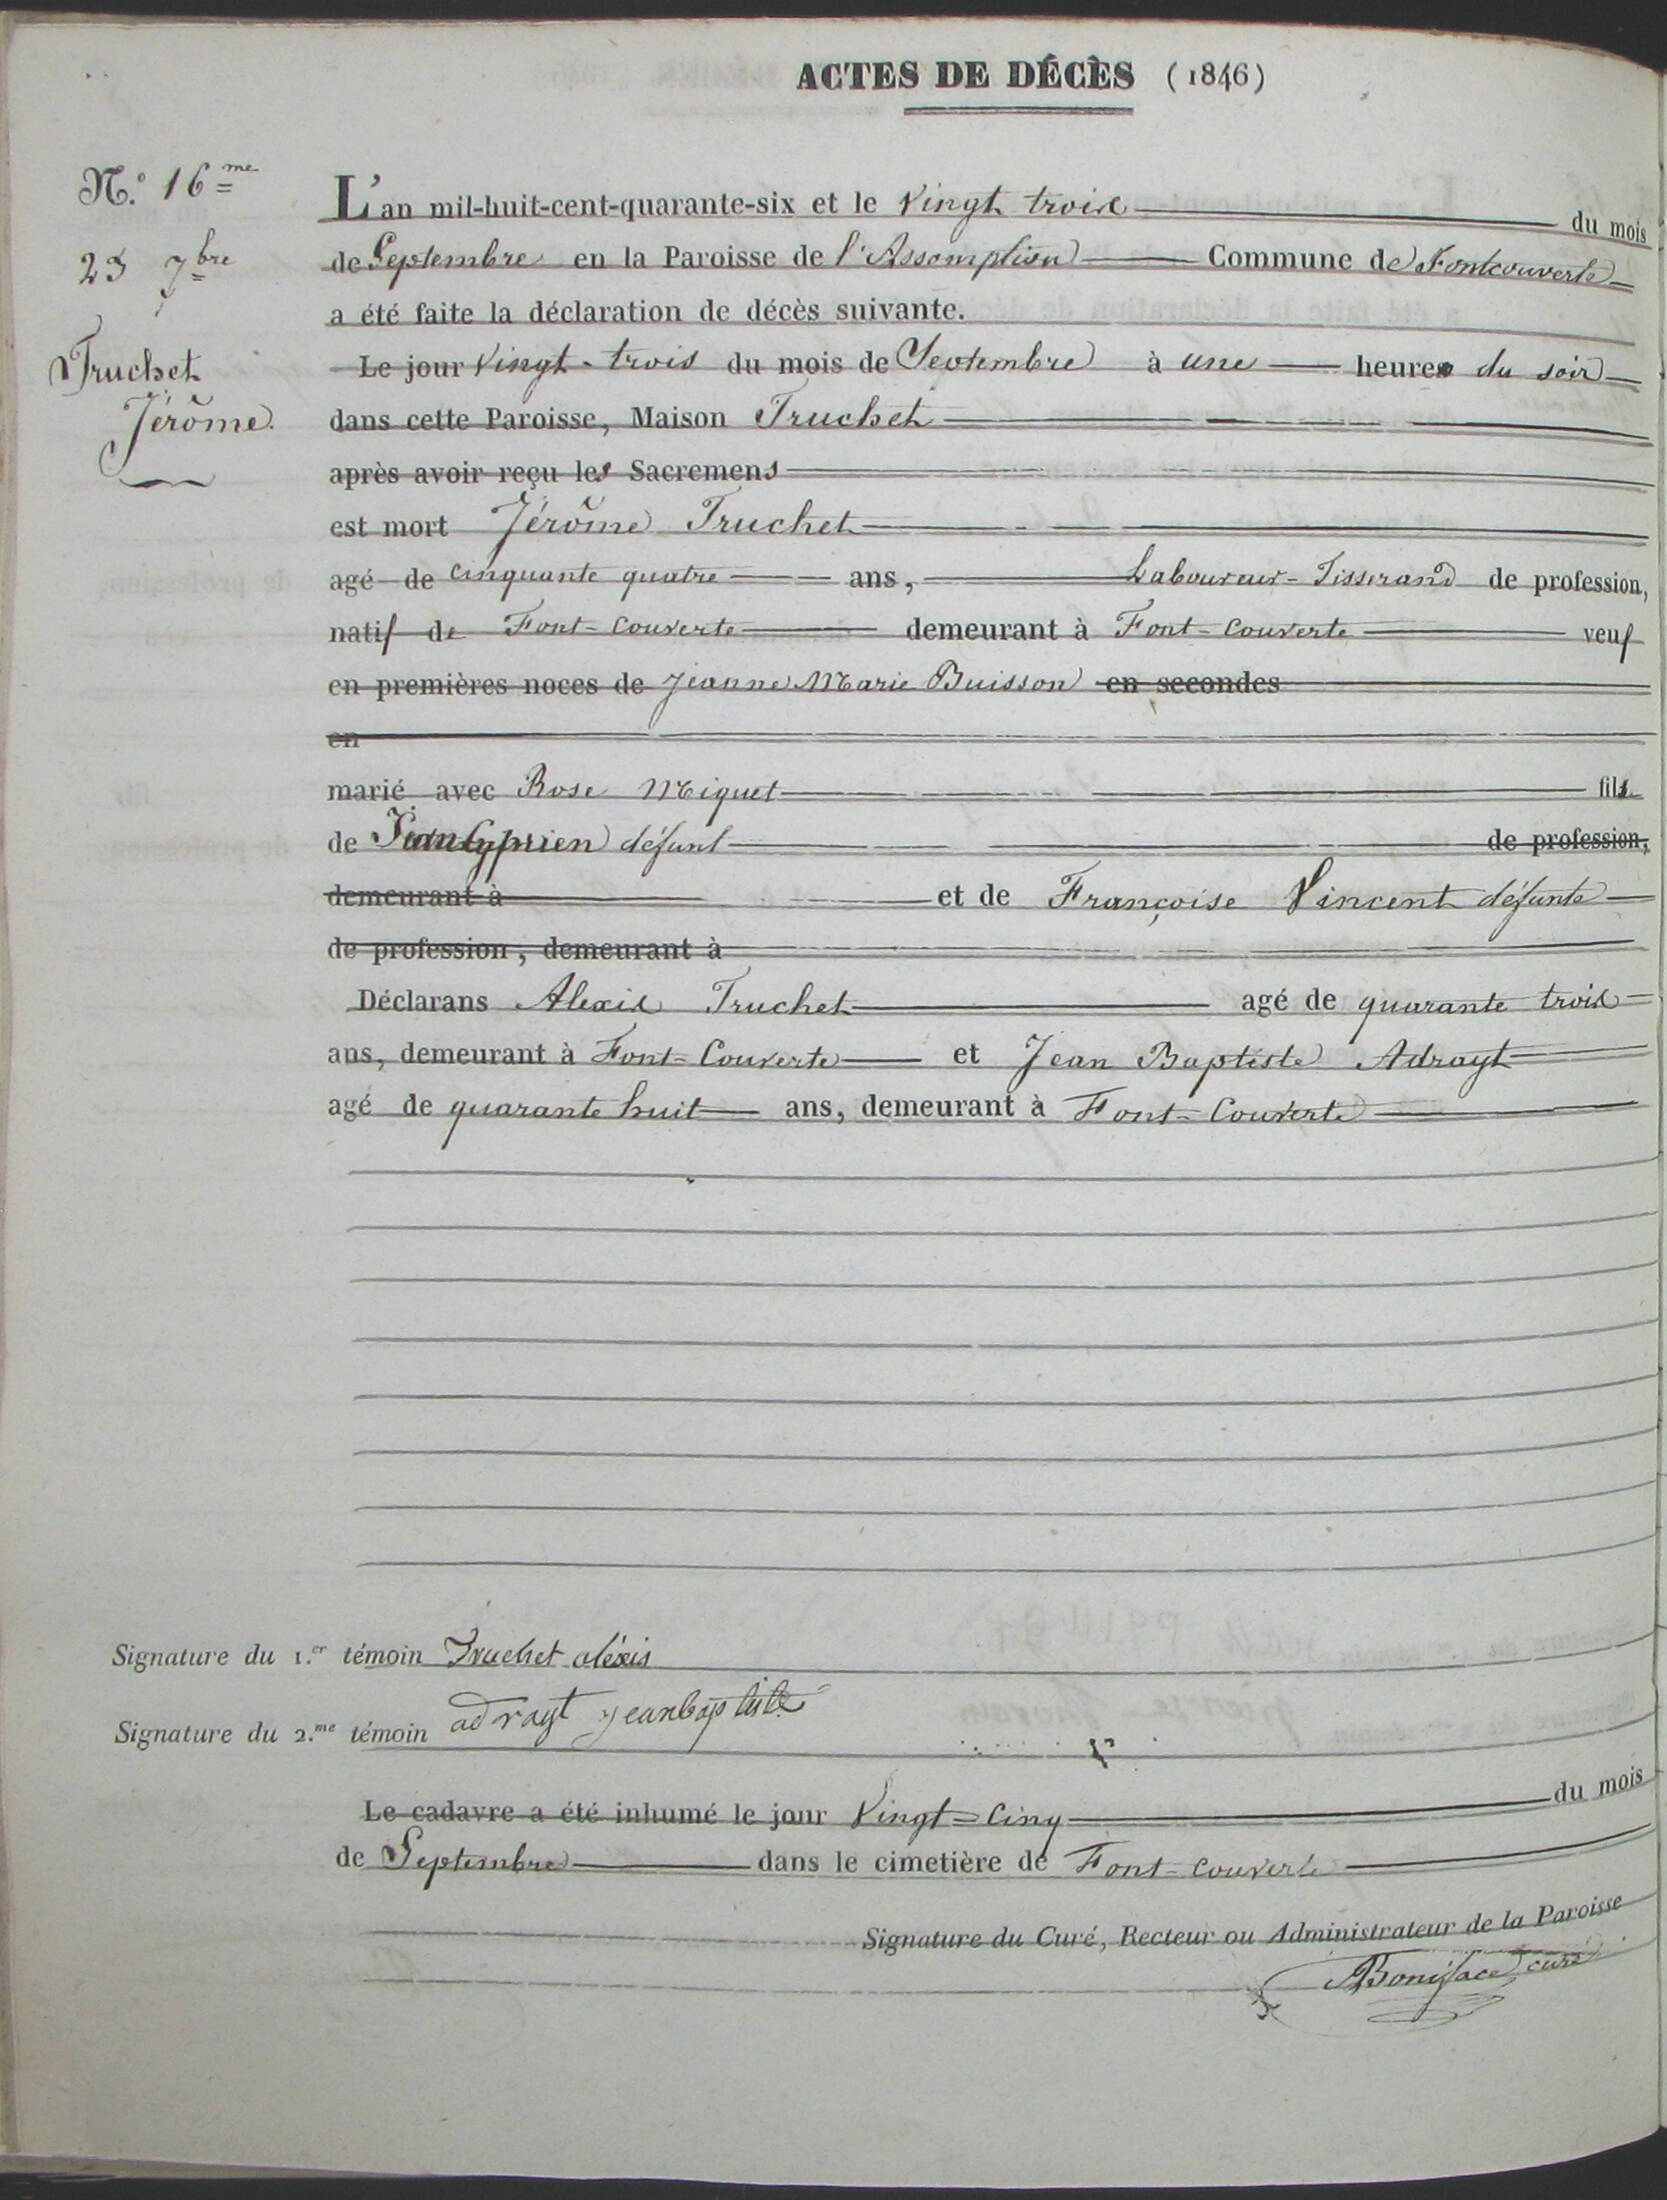 ACTES DE DÉCÈS (1846)
N.° 16me
23 7bre
Truchet
Jérôme.
L'an mil-huit-cent-quarante-six et le Vingt trois du mois
de Septembre en la Paroisse de l'Assomption Commune de Fontcouverte
a été faite la déclaration de décès suivante.
Le jour Vingt-trois du mois de Septembre à une heure du soir
dans cette Paroisse, Maison Truchet
après avoir reçu les Sacremens
est mort Jérôme Truchet
agé de cinquante quatre ans, Laboureur-Tisserand de profession,
natif de Font-Couverte demeurant à Font-Couverte veuf
en premières noces de Jeanne Marie Buisson en secondes
en
marié avec Rose Miquet fils
de Jean Cyprien défunt de profession,
demeurant à et de Françoise Vincent défunte
de profession, demeurant à
Déclarans Alexis Truchet agé de quarante trois
ans, demeurant à Font-Couverte et Jean Baptiste Adrayt
agé de quarante huit ans, demeurant à Font-Couverte
Signature du 1.er témoin Truchet aléxis
Signature du 2.me témoin adrayt jeanbaptiste
Le cadavre a été inhumé le jour Vingt-Cinq du mois
de Septembre dans le cimetière de Font-Couverte
Signature du Curé, Recteur ou Administrateur de la Paroisse
Boniface, curé